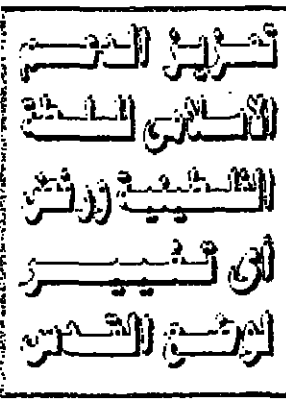 تعزيز الدعم
الألماني للسلطة
الفلسطينية ورفض
أي تغيير
لوضع القدس